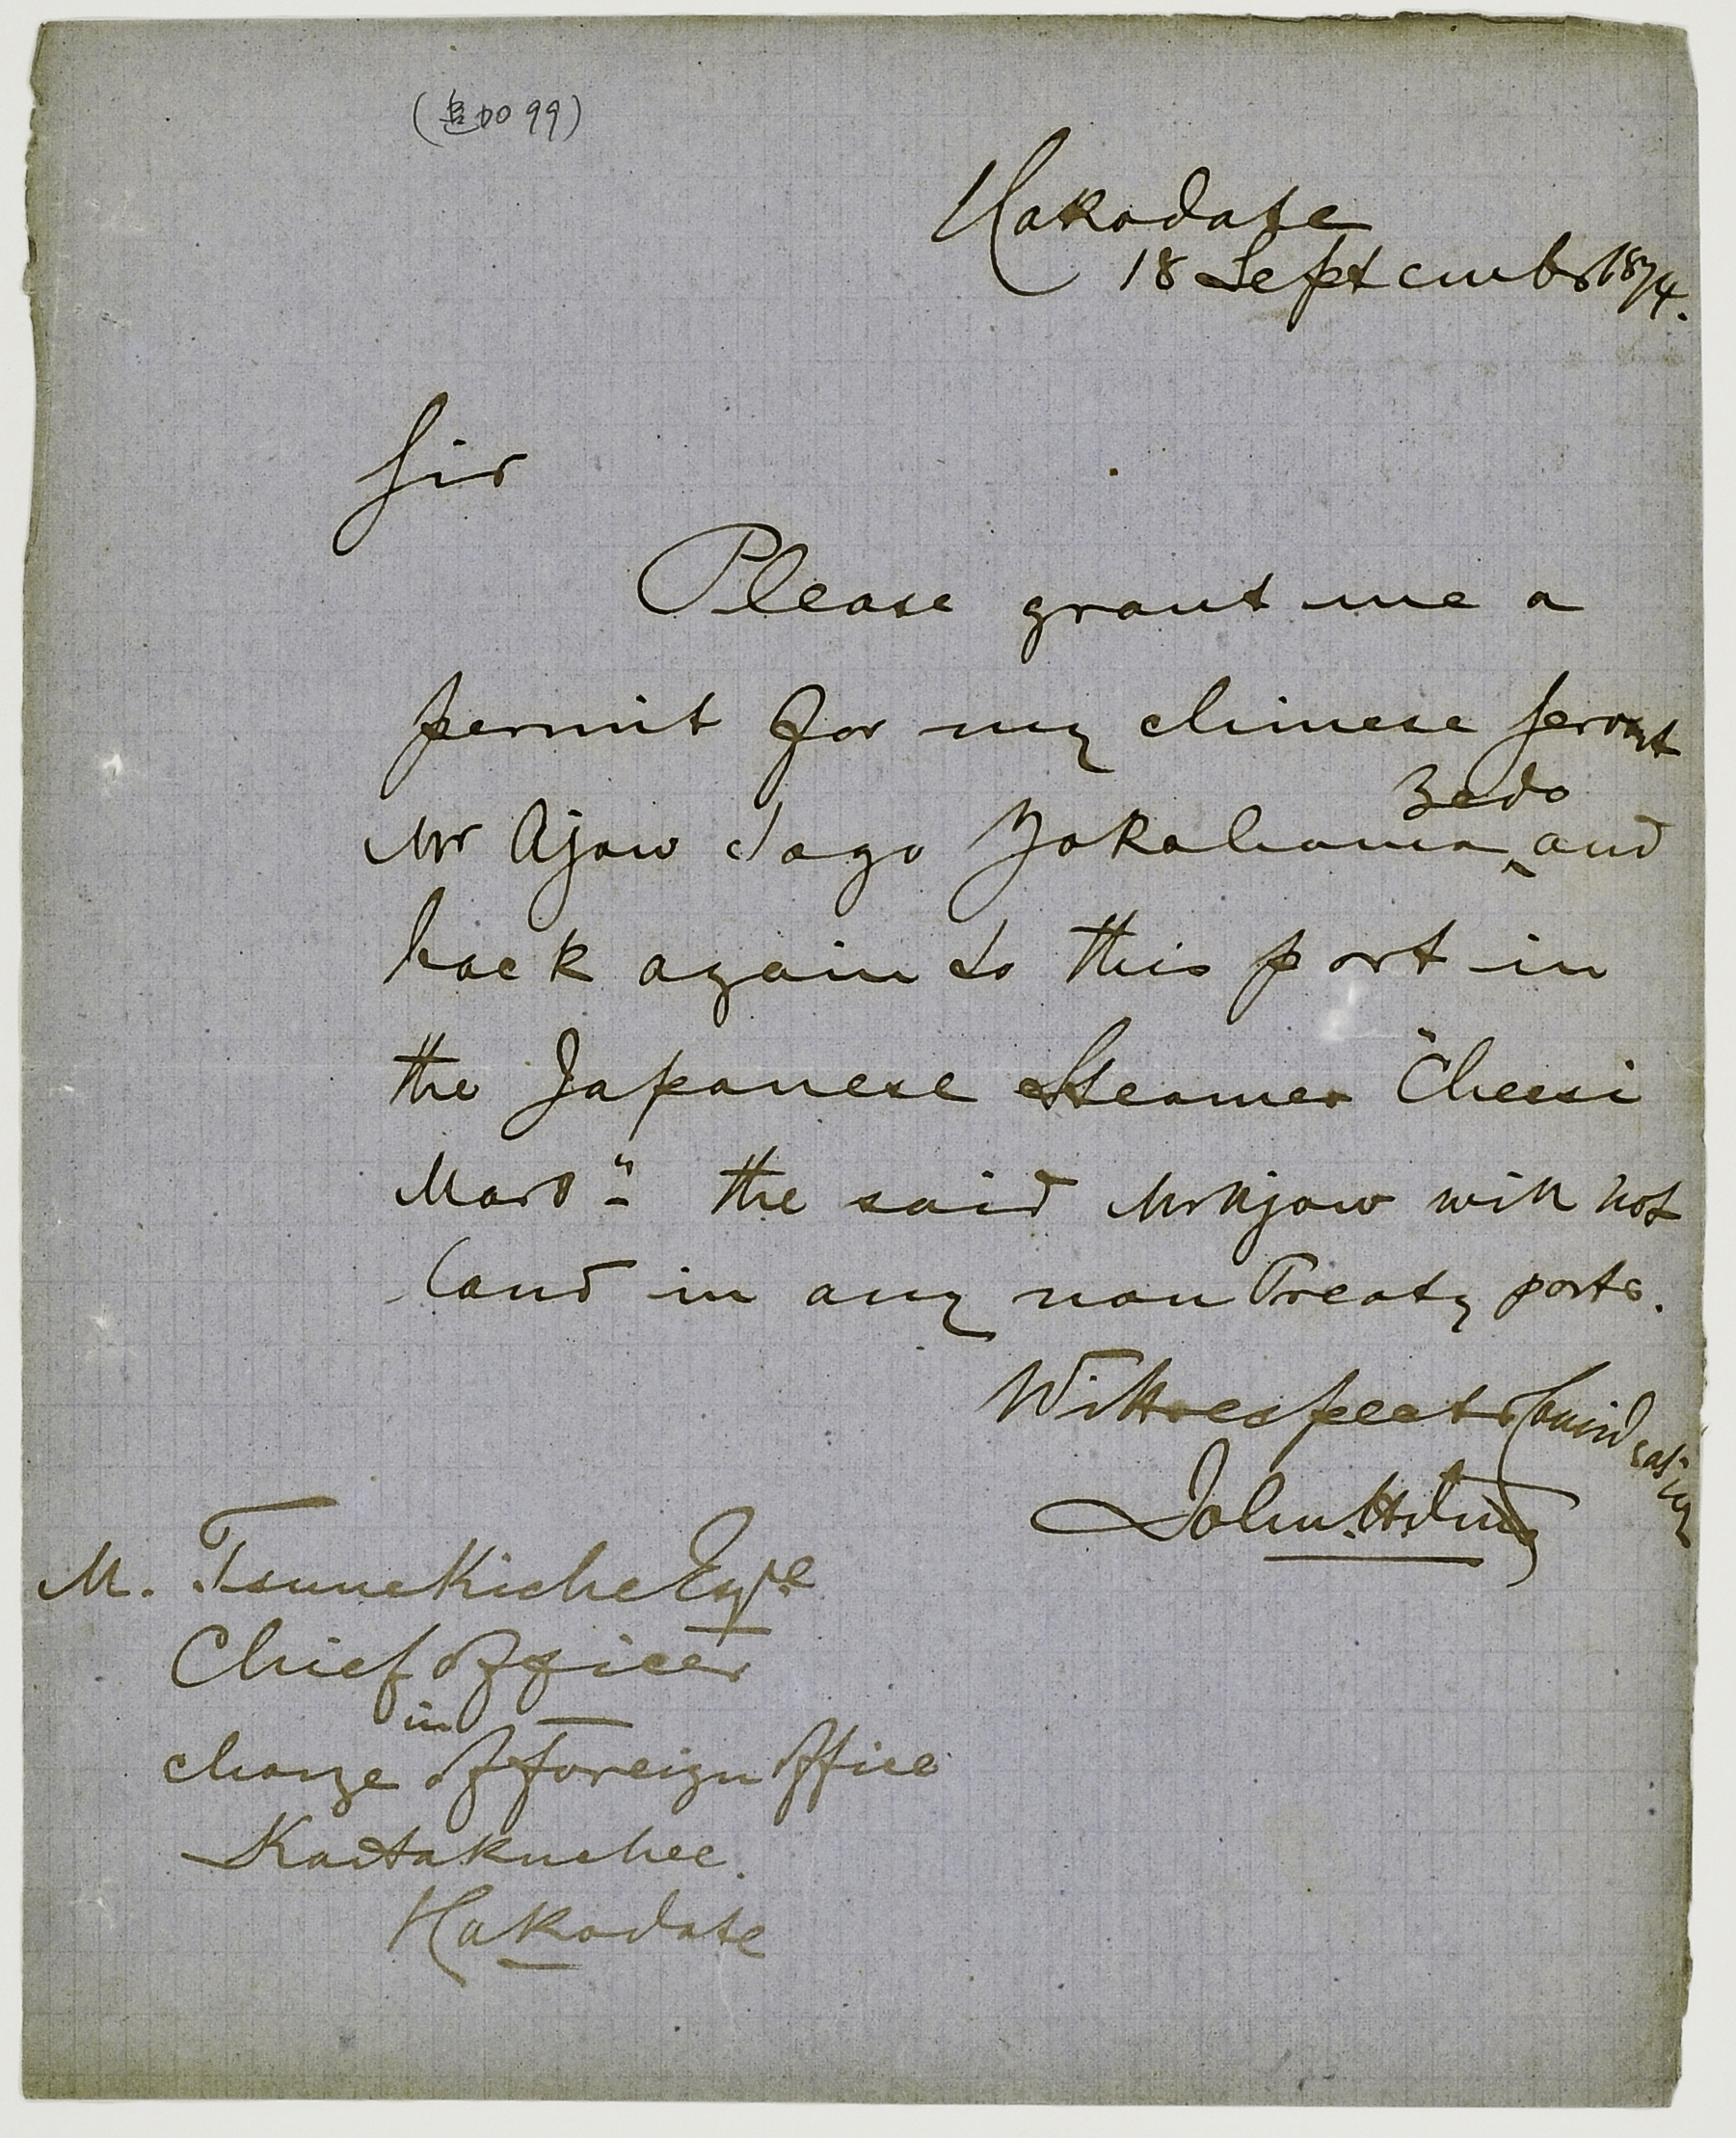 Hakodate
18 September 1874.
Sir
Please grant me a
permit for my chinese servant
Yedo
Mr Ajow to go Yokohama and
back again to this port in
the Japanese Steamer "Cheesi
Maro" the said Mr Ajow will not
land in any non Treaty ports.
With respects
John
M. Tsunekiche Esqre
Chief officer
in
charge of foreign office
Kaitakuchee.
Hakodate